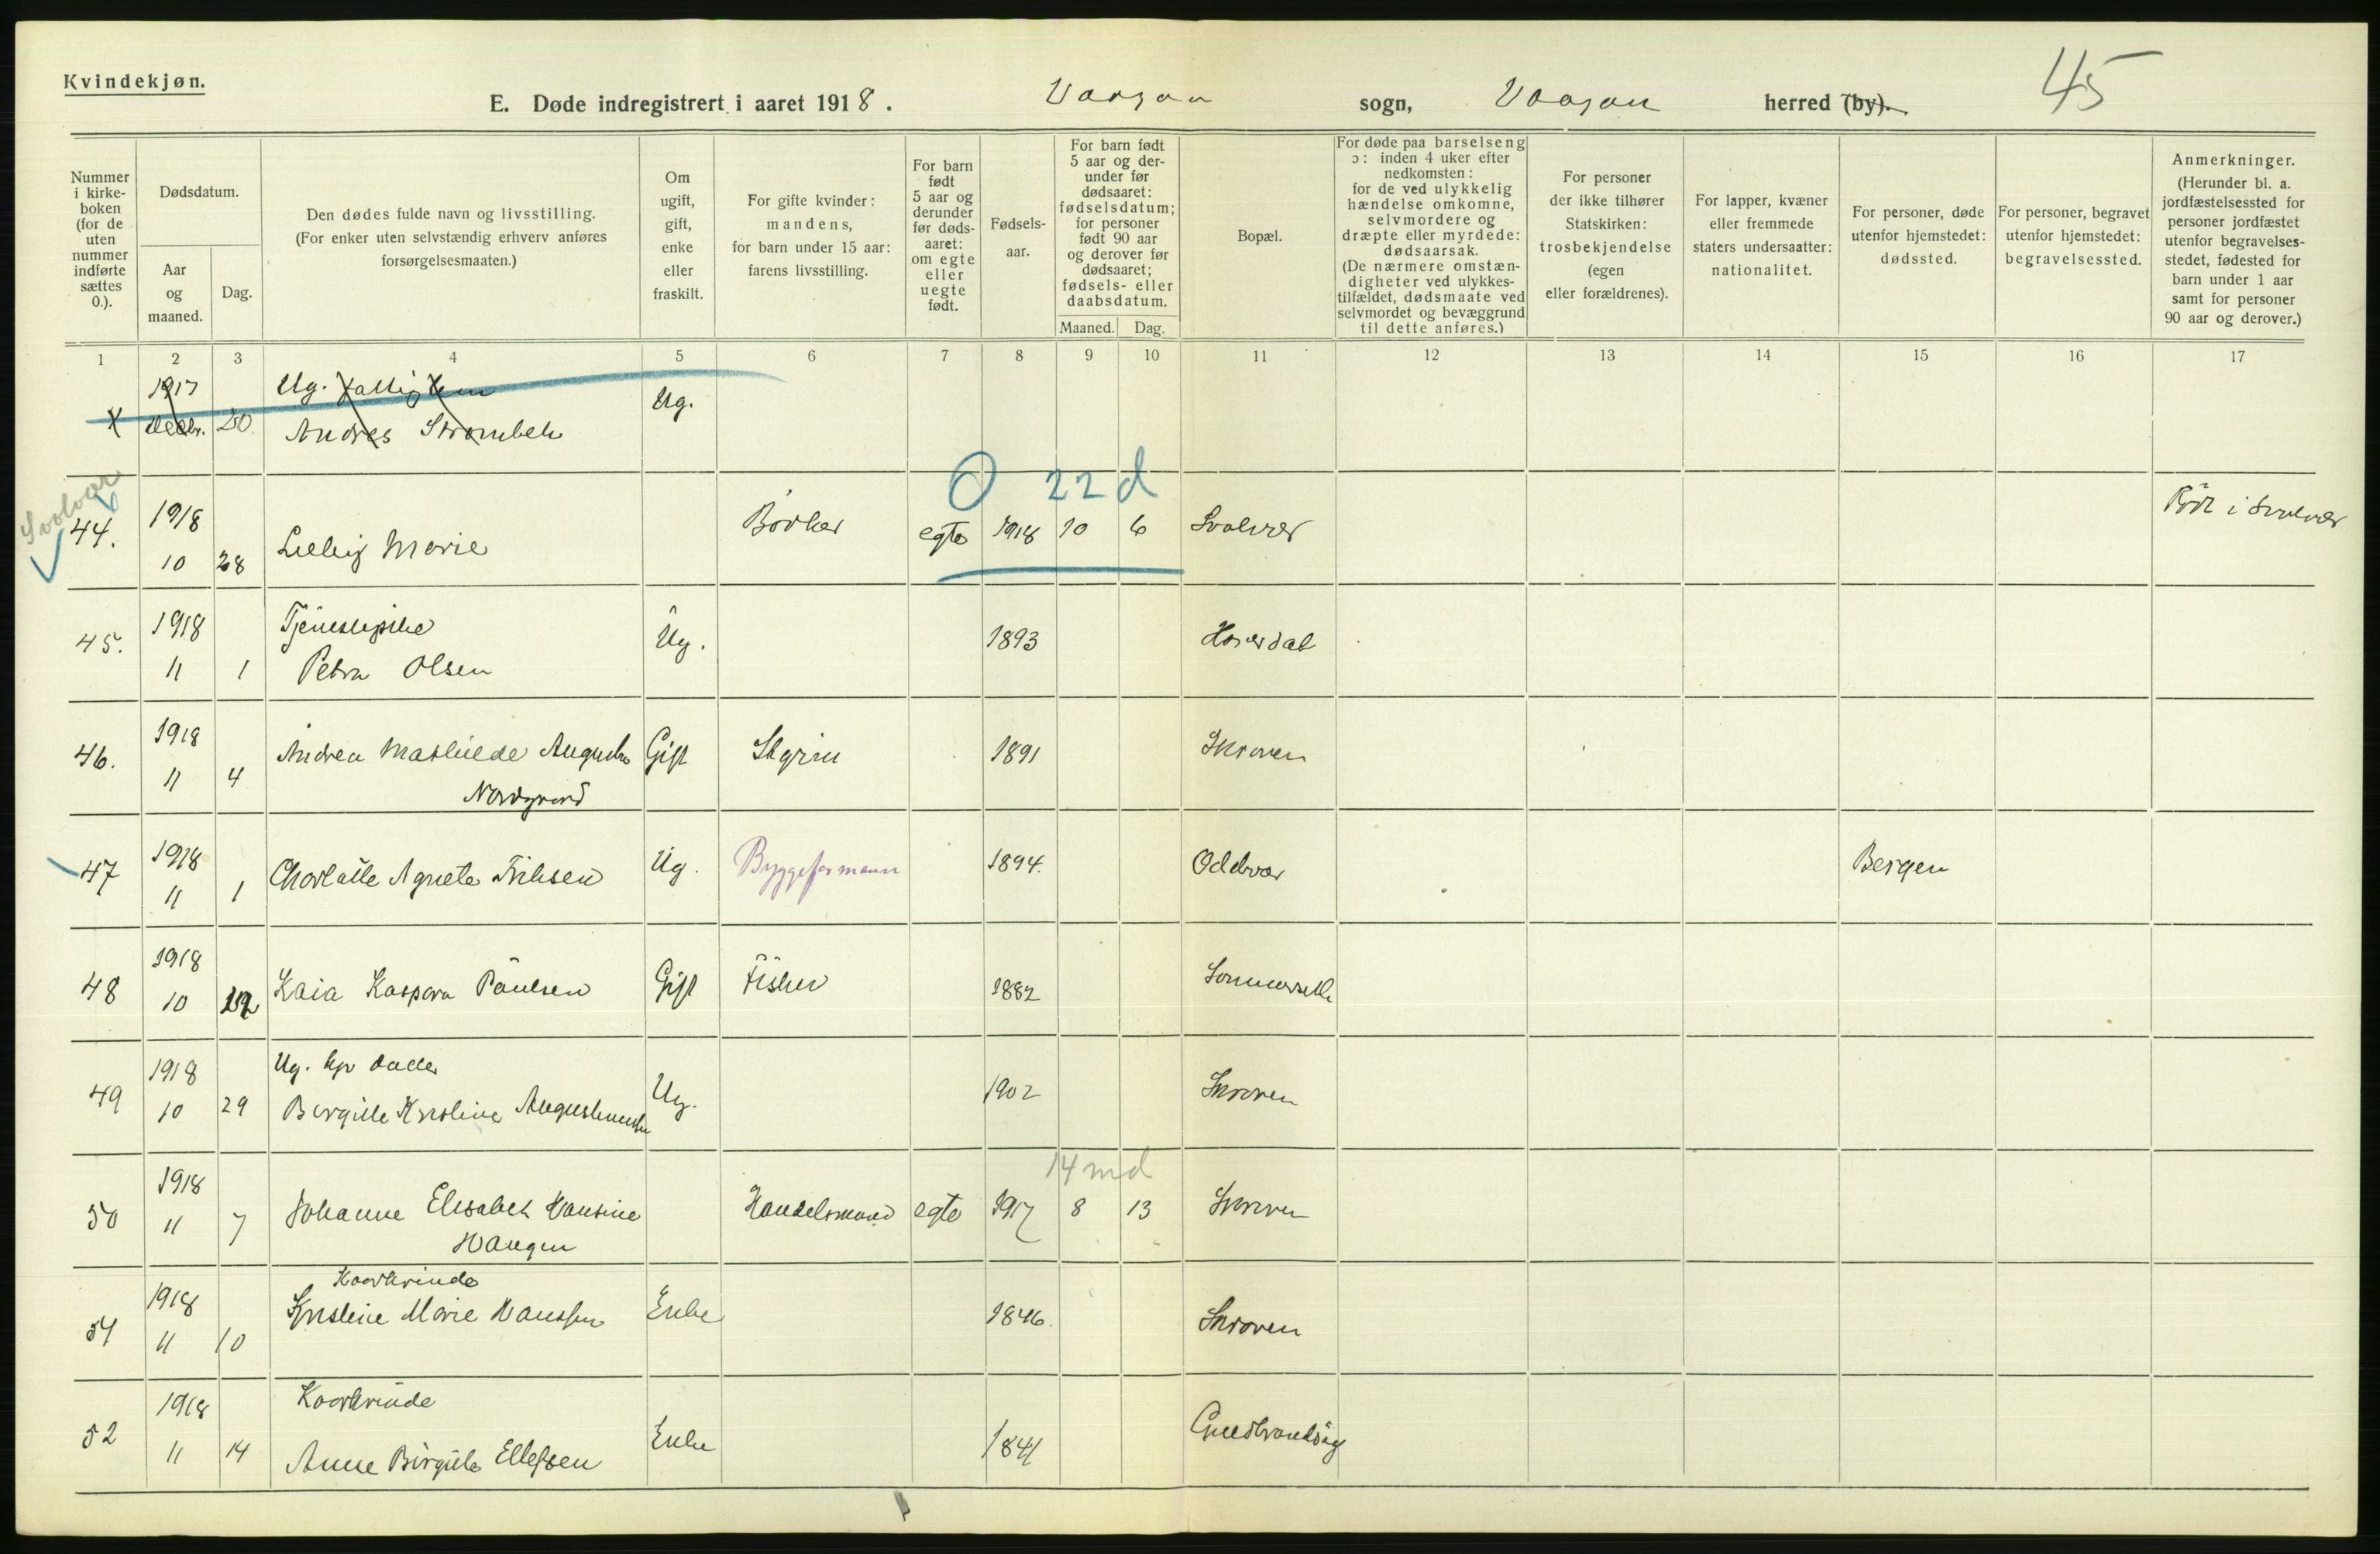 Kvindekjøn.
E. Døde indregistrert i aaret 1918. Vaagan sogn, Vaagan herred (by).
45
Nummer i kirke-boken (for de uten nummer indførte sættes 0.).
Dødsdatum.
Aar og maaned.
Dag.
Den dødes fulde navn og livsstilling.
(For enker uten selvstændig erhverv anføres forsørgelsesmaaten.)
Om ugift, gift, enke eller fraskilt.
For gifte kvinder: mandens, for barn under 15 aar: farens livsstilling.
For barn født 5 aar og derunder før døds-aaret: om egte eller uegte født.
Fødsels-aar.
For barn født 5 aar og der-under før dødsaaret: fødselsdatum; for personer født 90 aar og derover før dødsaaret; fødsels- eller daabsdatum.
Maaned.
Dag.
Bopæl.
For døde paa barselseng ɔ: inden 4 uker efter nedkomsten: for de ved ulykkelig hændelse omkomne, selvmordere og dræpte eller myrdede: dødsaarsak. (De nærmere omstæn-digheter ved ulykkes-tilfældet, dødsmaate ved selvmordet og bevæggrund til dette anføres.)
For personer der ikke tilhører Statskirken: trosbekjendelse (egen eller forældrenes).
For lapper, kvæner eller fremmede staters undersaatter: nationalitet.
For personer, døde utenfor hjemstedet: dødssted.
For personer, begravet utenfor hjemstedet: begravelsessted.
Anmerkninger. (Herunder bl. a. jordfæstelsessted for personer jordfæstet utenfor begravelses-stedet, fødested for barn under 1 aar samt for personer 90 aar og derover.)
1 2 3 4 5 6 7 8 9 10 11 12 13 14 15 16 17
1917 Ug.
Decbr. 20. Andres Ug.
Svolvær
0 22 d
44. 1918 Bødker egte 1918 10 6 Svolvær Født i Svolvær
10 28 Marie
45. 1918 Tjenestepike Ug. 1893
11 1 Petra Olsen
46. 1918 Andrea Gift 1891 Skroven
11 4 Nordgaard
47 1918 Agnete Ug. Byggeformann 1894. Oddvær Bergen
11 1
48 1918 Kaia Kaspara Paulsen Gift Fisker 1882
10
49 1918 Ug. Ug. 1902 Skroven
10 29
14 md
50 1918 Johanne Elisabet Hansine Handelsmand egte 1917 8 13 Skroven
11 7 Haugen
51 1918 Kaarkvinde
Kristine Marie Hanssen Enke 1846. Skroven
11 10
52 1918 Kaarkvinde
11 14 Anne Birgitte Ellefsen Enke 1841